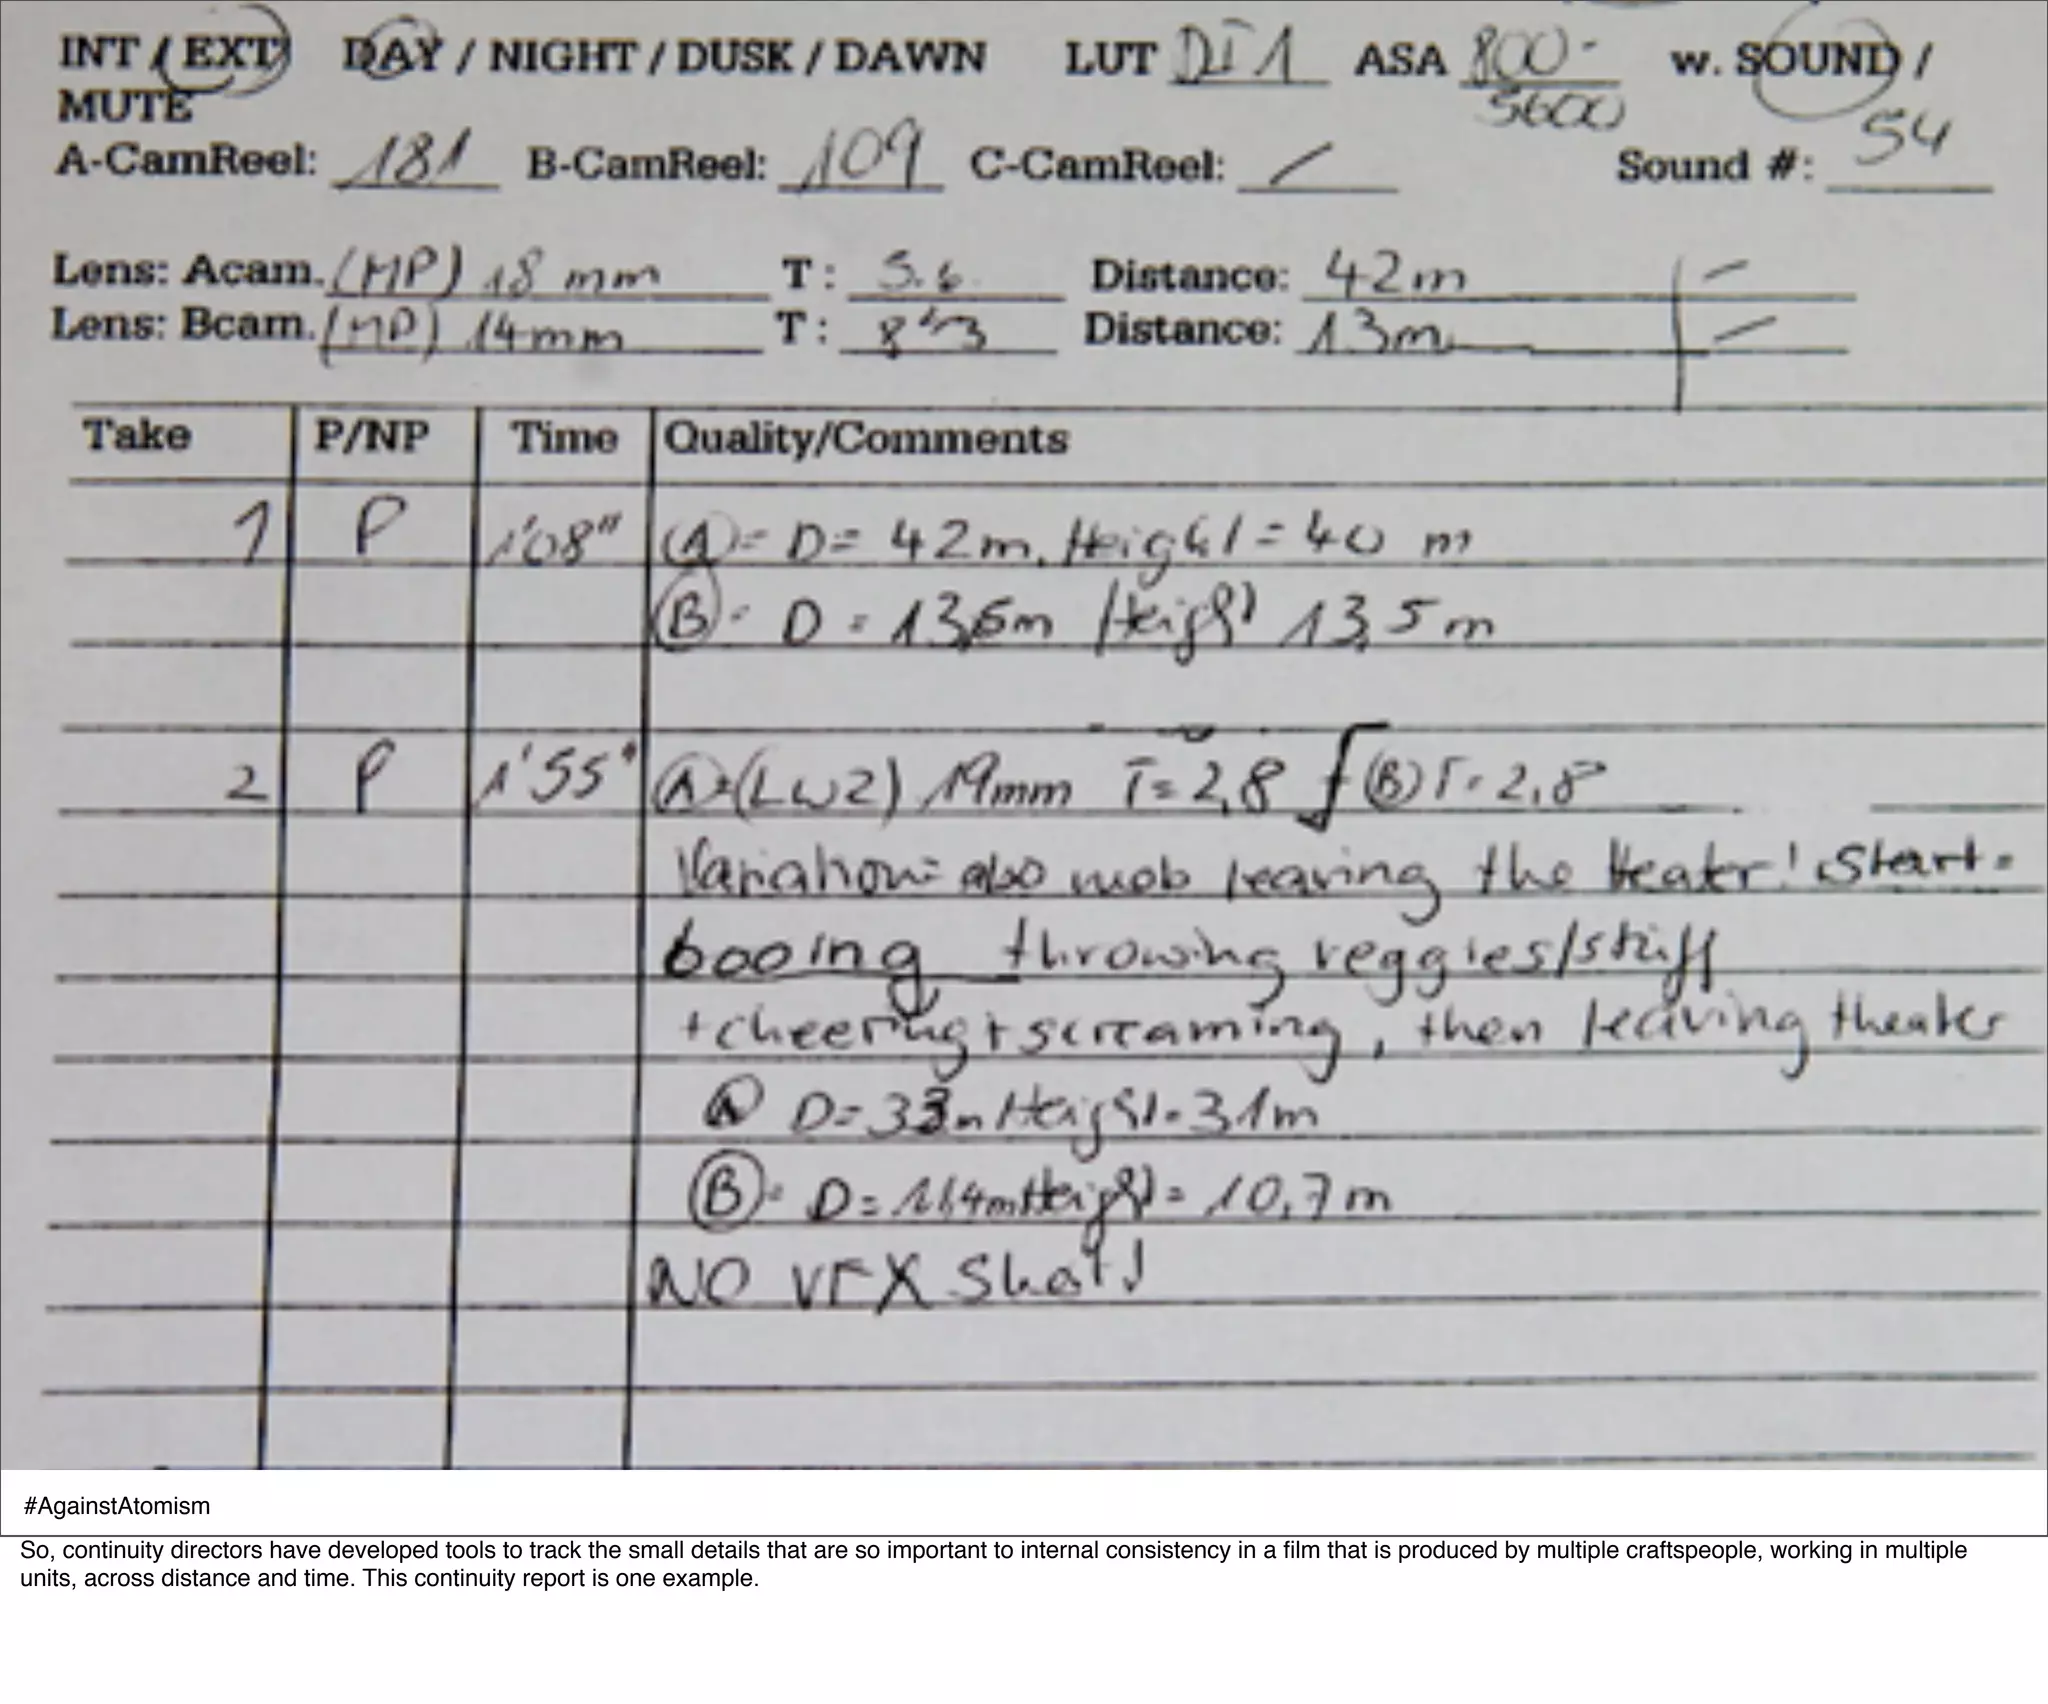 INT / EXT DAY / NIGHT / DUSK / DAWN LUT DI 1 ASA 800- w. SOUND /
MUTE 5600
A-CamReel: 181 B-CamReel: 109 C-CamReel: / Sound #: 54
Lens: Acam. (MP) 18 mm T: 5.6 Distance: 42m -
Lens: Bcam. (MP) 14mm T: 8 1/3 Distance: 13m -
Take P/NP Time Quality/Comments
1 P 1'08" (A) = D = 42m. Height = 40 m
(B) = D = 13,5m Height 13,5m
2 P 1'55" (A) = (LW2) 19mm T = 2,8 (B) T = 2,8
Variation = also mob leaving the theater! Start =
booing throwing veggies/stuff
+ cheering + screaming, then leaving theater
(A) D = 33m Height = 31m
(B) = D = 11,4m Height = 10,7m
NO VFX Shot!
#AgainstAtomism
So, continuity directors have developed tools to track the small details that are so important to internal consistency in a film that is produced by multiple craftspeople, working in multiple
units, across distance and time. This continuity report is one example.